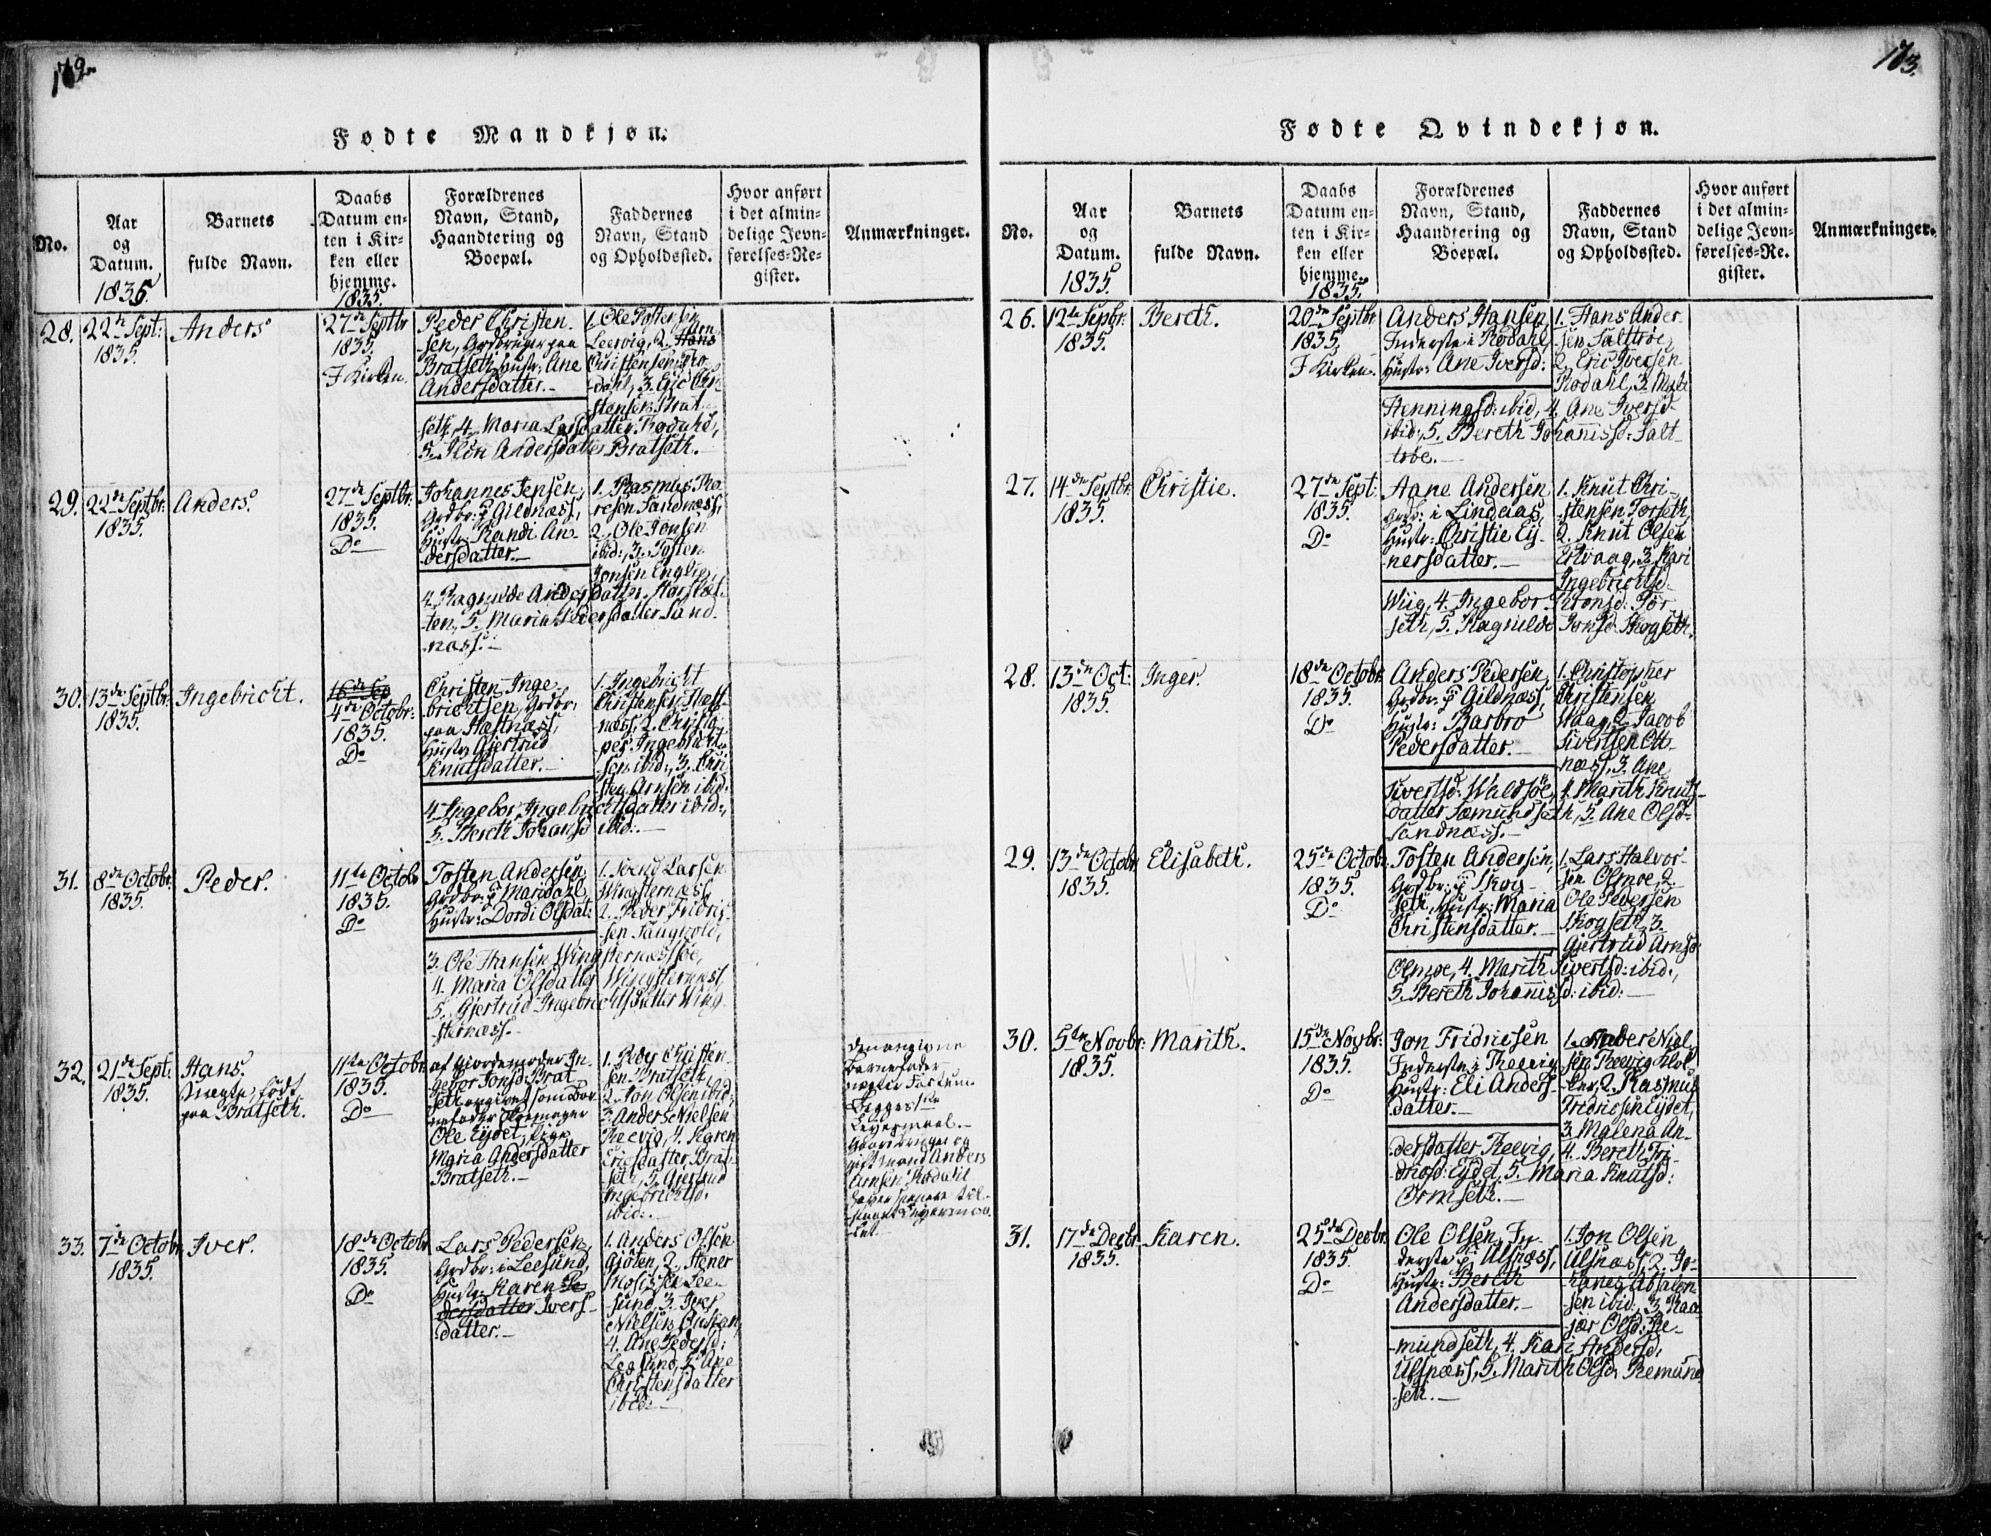 Fødte Mandkjøn.
No.
Aar og Datum.
1835.
Barnets fulde Navn.
Daabs Datum enten i Kirken eller hjemme.
1835.
Forældrenes Navn, Stand, Haandtering og Boepæl.
Faddernes Navn, Stand og Opholdssted.
Hvor anført i det almindelige Jevnførelses-Register.
Anmærkninger.
28.
22de Sept:
1835.
Anders
27de Septbr
1835.
I Kirken.
Peder Christen-
sen, Grdbruger paa
Bratseth, Hustr: Ane
Andersdatter.-
1. Ole
Leervig, 2.
Christensen Ro-
dahl, 3. Eric Chri
stensen Brat-
seth, 4. Maria Larsdatter Rodahl,
5. Andersdatter Bratseth.-
29.
22de Septbr.
1835.
Anders.
27de Septbr.
1835.
Do
Johannes Jensen,
Grdbr: i Gildnæss,
Hustr: Randi An-
dersdatter.-
1. Rasmus To-
resen Sandnæss,
2. Ole Jonsen
ibid:, 3. Tosten
Jonsen
4. Ragnilde Andersdatter
ten, 5. Maria Pedersdatter Sand-
næss.-
30.
13de Septbr.
1835.
Ingebricht.
4de Octobr:
1835.
Do
Christen Inge-
brichtsen, Grdbr:
paa
Hustr: Gjertrud
Knutsdatter.-
1. Ingebricht
Christensen
næss, 2. Christo-
per Ingebricht-
sen ibid:, 3. Chri-
sten Arnsen ibid:
4. Ingebor Ingebrichtsdatter ibid:,
5. Bereth Johansd ibid:-
31.
8de Octobr:
1835.
Peder.
11te Octobr
1835.
Do
Tosten Andersen
Grdbr: i Maridahl,
Hustr: Dordi Olsdat:
1. Svend Larsen
Wingsternæss,
2. Peder Fridric-
sen
3. Ole Hansen Wingsternæssøe,
4. Maria Olsdatter Wingsternæss,
5. Gjertrud Ingebrichtsdatter Wing-
sternæss.-
32.
21de Sept:
1835.
Hans.
Uægte, født
paa Bratseth.
11te Octobr.
1835.
Do
af Giordemoder In-
gebor Jonsd: Brat-
seth angivet som Bar-
nefader
Ole Eydet, Pige
Maria Andersdatter
Bratseth.-
1. Peder Christen-
sen Bratseth,
2. Jon Olsen ibid:
3. Anders Nielsen
Reevig, 4. Karen
Ericsdatter Brat-
seth, 5. Gjertrud
Ingebrichtsd:
ibid:.-
Den angivne
Barnefader
nægter Factum.
Leyermaal.-
Gaardbruger og
gift Mand Anders
Arnsen Rodahl
haver senere til-
staaet Leyermaa-
let.
33.
7de Octobr.
1835.
Iver.
18de Octobr
1835.
Do
Lars Pedersen,
Grdbr: i Leesund,
Hustr: Karen Pe
dersdatter Ivers-
datter.-
1. Anders Olsen
Gjøten, 2. Stener
Lee-
sund, 3. Iver
Nielsen
4. Ane Pedersd:
Leesund, 5. Ane
Christensdatter
ibid:-
173.
Fødte Qvindekjøn.
No.
Aar og Datum.
1835.
Barnets fulde Navn.
Daabs Datum enten i Kirken eller hjemme.
1835.
Forældrenes Navn, Stand, Haandtering og Boepæl.
Faddernes Navn, Stand og Opholdssted.
Hvor anført i det almindelige Jevnførelses-Register.
Anmærkninger.
26.
12te Sepbr.
1835.
Bereth.
20de Septbr
1835.
I Kirken.
Anders Hansen,
Inderste i Rodahl
Hustr: Ane Iversd:
1. Hans Ander-
sen Salttrøe,
2. Eric Iversen
Rodahl, 3. Marit
Henningsd: ibid, 4. Ane Iversd-
ibid:, 5. Bereth Johannisd: Salt-
trøe.-
27.
14de Septbr.
1835.
Christie.
27de Sept.
1835.
Do
Aane Andersen
Grdb: i Lindaas,
Hustr: Christie Ey-
nersdatter.-
1. Knut Chri-
stensen Torseth,
2. Knut Olsen
Ertvaag, 3. Kari
Ingebrichtsd.
Wiig, 4. Ingebor Aronsd: Tor-
seth, 5. Ragnilde Jonsd Skogseth.
28.
13de Oct:
1835.
Inger.
18de Octobr
1835.
Do
Anders Pedersen,
Grdbr: i Gildnæss,
Hustr: Barbro
Pedersdatter.-
1. Christopher
Christensen
Waag, 2. Jacob
Sivertsen Ott-
næss, 3. Ane
Sivertsd: Waldsøe, 4. Marith Knuts-
datter Sæmundseth, 5. Ane Olsd-
Sandnæss.-
29.
13de Octobr
1835.
Elisabeth.
25de Octobr.
1835.
Do
Tosten Andersen,
Grdbr: i Skog-
seth, Hustr: Maria
Christensdatter.-
1. Lars Halvor-
sen Olmoe, 2.
Ole Pedersen
Skogseth, 3.
Gjertrud Arnsd:
Olmoe, 4. Marith Sivertsd: ibid:,
5. Bereth Johannisd: ibid:-
30.
5te Novbr:
1835.
Marith.
15de Novbr:
1835.
Do
Jon Fridricsen
Inderste i Reevig
Hustr: Eli Anders-
datter.-
1. Niel-
sen Reevig
2. Rasmus
Fridricsen Eydet,
3. Malena An-
dersdatter Reevig, 4. Bereth Fri-
dricsd: Eydet, 5. Maria Knutsd:
Ormseth.-
31.
17de Decbr.
1835.
Karen.
25de Decbr.
1835.
Do
Ole Olsen, In-
derste i Ulsnæss,
Hustr: Bereth
Andersdatter.-
1. Jon Olsen
Ulsnæss, 2. Jo-
hanes Absalon-
sen ibid:, 3.
Olsd: Re-
mundseth, 4. Kari Andersd:
Ulsnæss, 5. Marith Olsd: Remund-
seth.-